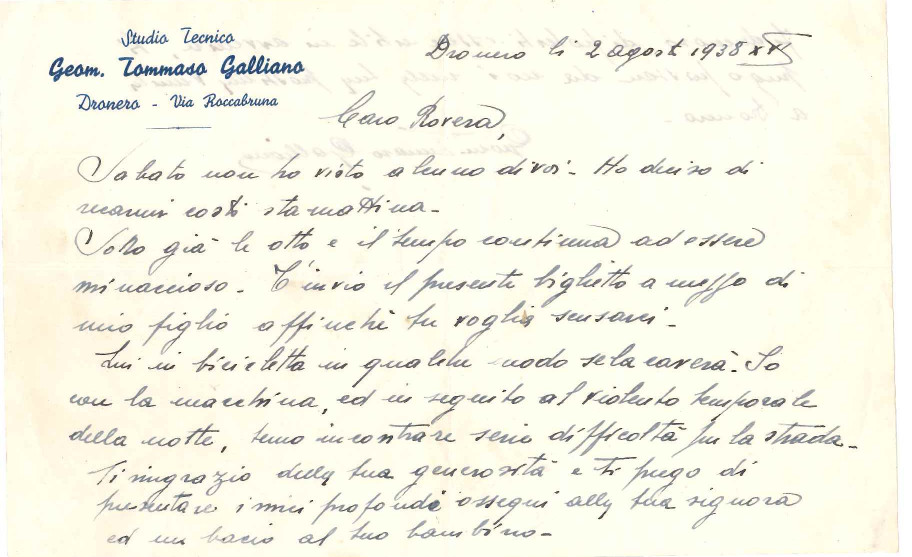 Studio Tecnico
Geom. Tommaso Galliano
Dronero - Via Roccabruna
Dronero li 2 agost 1938 XVI
Caro Rovera,
Sabato non ho visto alcuno di voi - Ho deciso di
recarmi costì stamattina -
Sono già le otto e il tempo continua ad essere
minaccioso - T'invio il presente biglietto a mezzo di
mio figlio affinchè tu voglia scusarci -
Lui in bicicletta in qualche modo se la caverà - Io
con la macchina, ed in seguito al violento temporale
della notte, temo incontrare serie difficoltà per la strada -
Ti ringrazio della tua generosità e ti prego di
presentare i miei profondi ossequi alla tua signora
ed un bacio al tuo bambino -